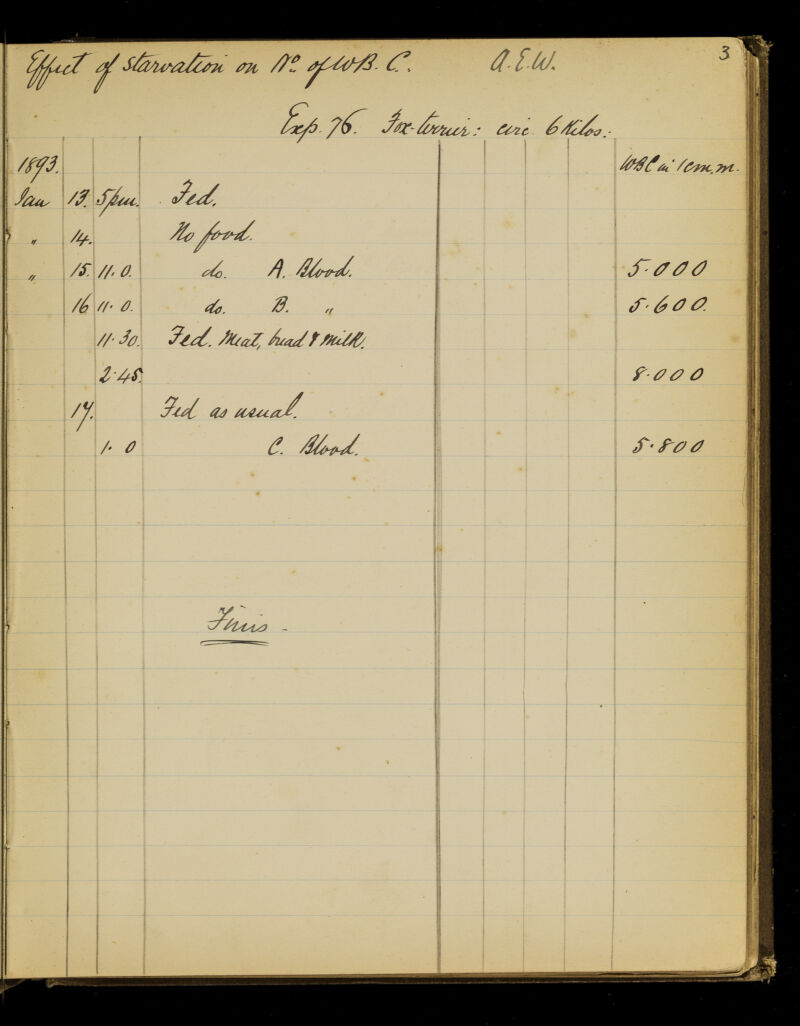 3
Effect of starvation on No. of W B. C. A. E. W.
Exp. 76. Fox-terrier: circ 6 Kilos:
1893. WBC in 1 cm. m.
Jan 13. 5pm. Fed.
" 14. No food.
" 15. 11. 0. do. A. Blood. 5.000
16 11. 0. do. B. " 5.600.
11. 30. Fed. Meat, bread & milk.
2. 45. 8.000
17. Fed as usual.
1. 0 C. Blood. 5.800
Finis -